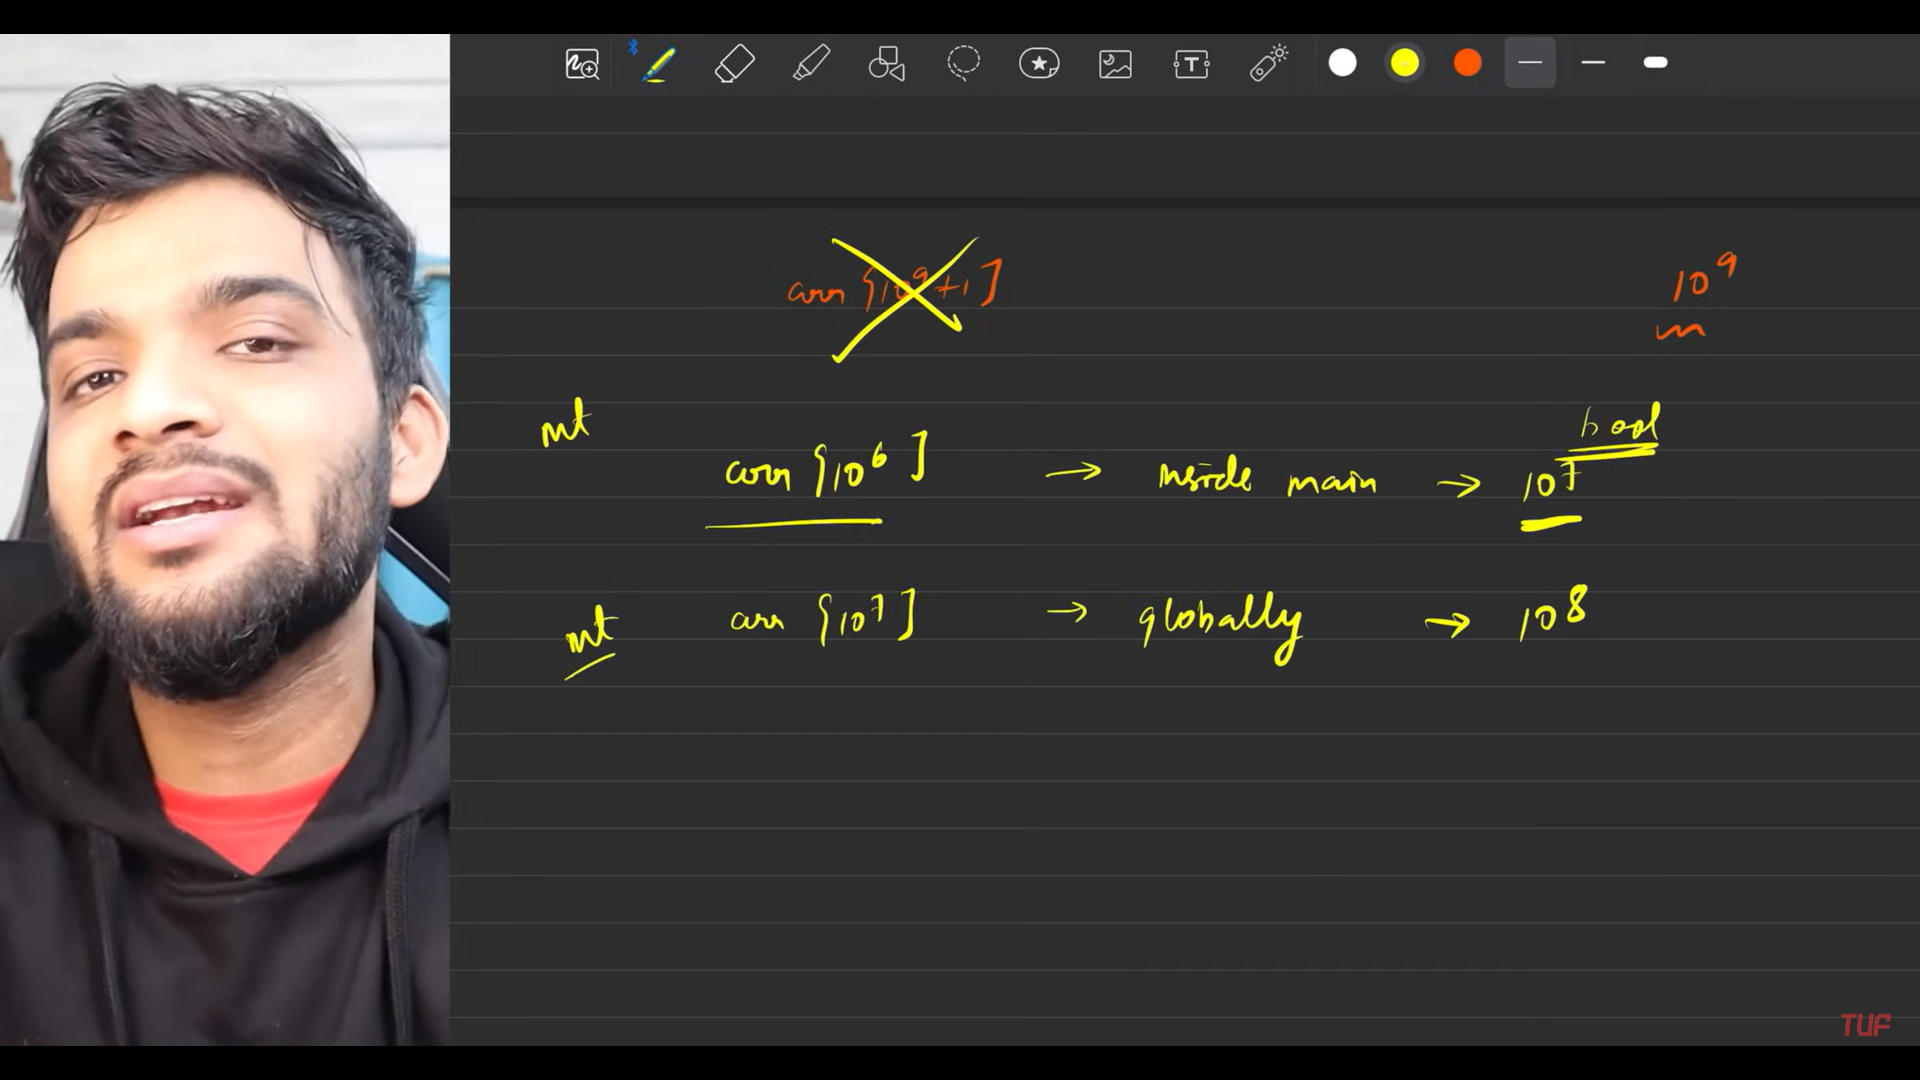 arr [10⁹+1] 10⁹
int arr [10⁶] → inside main → 10⁷ bool
int arr [10⁷] → globally → 10⁸
TUF